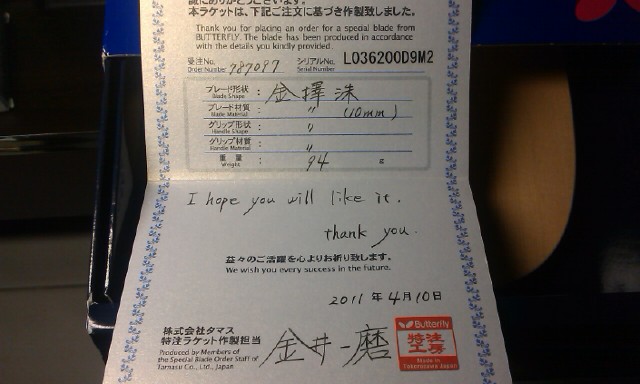 誠にありがとうございます。
本ラケットは、下記ご注文に基づき作製致しました。
Thank you for placing an order for a special blade from
BUTTERFLY. The blade has been produced in accordance
with the details you kindly provided.
受注No. Order Number 787097 シリアルNo. Serial Number L036200D9M2
ブレード形状 : 金擇洙
Blade Shape
ブレード材質 : 〃 (10mm)
Blade Material
グリップ形状 : 〃
Handle Shape
グリップ材質 : 〃
Handle Material
重量 : 94 g
Weight
I hope you will like it.
thank you.
益々のご活躍を心よりお祈り致します。
We wish you every success in the future.
2011年4月10日
株式会社タマス
特注ラケット作製担当 金井一磨
Produced by Members of
the Special Blade Order Staff of
Tamasu Co., Ltd., Japan
Butterfly
特注
工房
Made in
Tokorozawa Japan